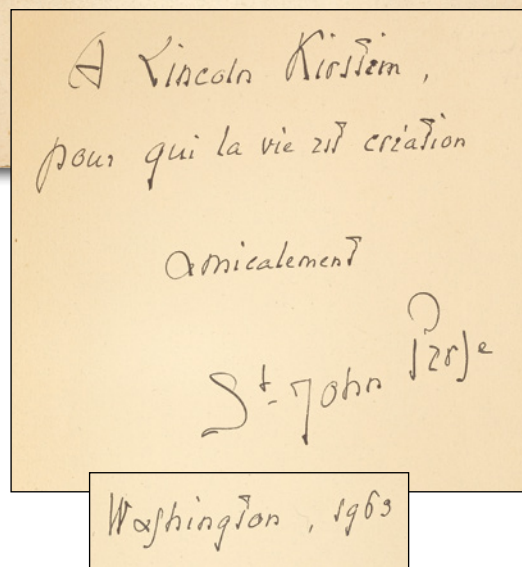 A Lincoln Kirstein,
pour qui la vie est création
amicalement
St-John Perse
Washington, 1963